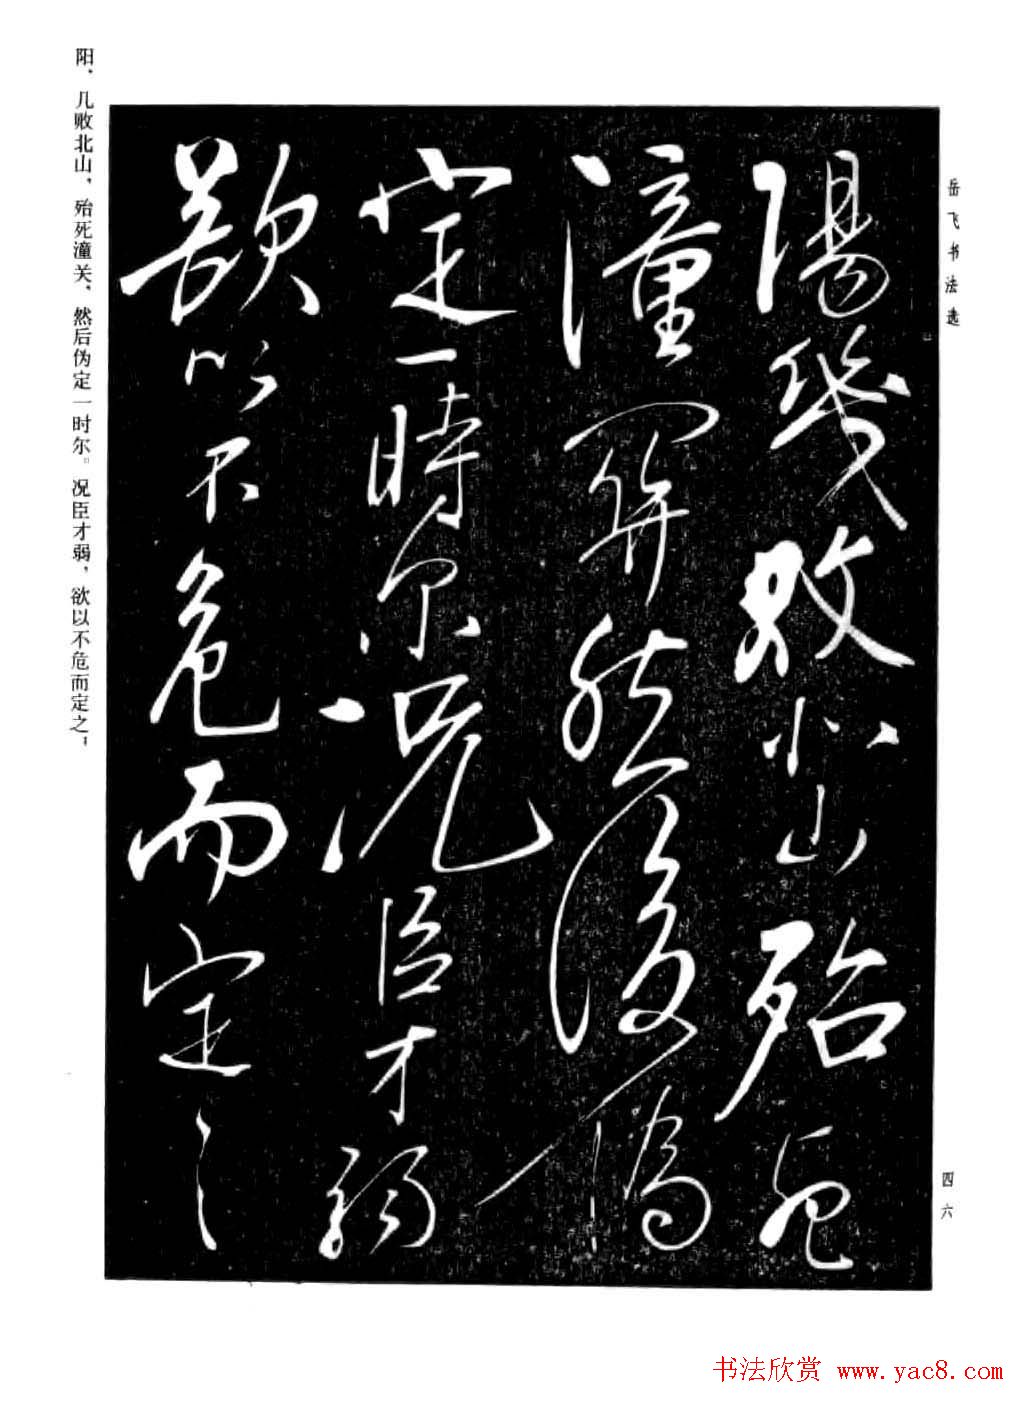 岳飞书法选
陽幾敗北山殆死
潼関然後偽
定一時尔況臣才弱
欲以不危而定之
四六
阳，几败北山，殆死潼关，然后伪定一时尔。况臣才弱，欲以不危而定之，
书法欣赏 www.yac8.com